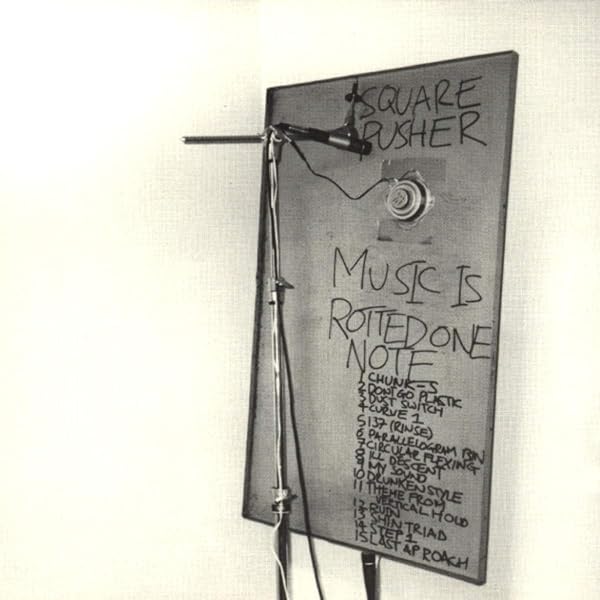 SQUARE
PUSHER
MUSIC IS
ROTTED ONE
NOTE
1 CHUNK-S
2 DONT GO PLASTIC
3 DUST SWITCH
4 CURVE 1
5 137 (RINSE)
6 PARALLELOGRAM BIN
7 CIRCULAR FLEXING
8 ILL DESCENT
9 MY SOUND
10 DRUNKEN STYLE
11 THEME FROM
VERTICAL HOLD
12 RUIN
13 SHIN TRIAD
14 STEP 1
15 LAST AP ROACH